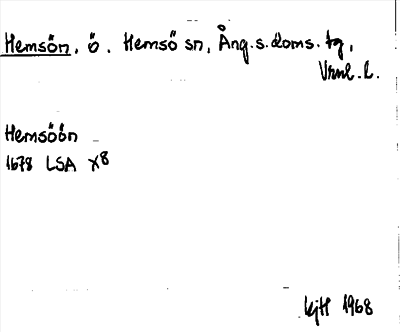 Hemsön, ö. Hemsö sn, Ång. s. doms. tg,
Vrnl. l.
Hemsöön
1678 LSA X8
kjtl 1968